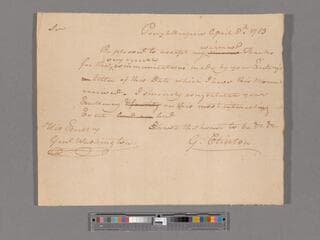 Sir
Poughkeepsie April 8th. 1783
Be pleased to accept my warmest thanks
for the communications made by your Excellcy's
letter of this date which I have this moment
received. I sincerely congratulate your
Excellency on this most interesting
Event
I have the honor to be &c &c
His Excelcy
Genl Washington
G. Clinton